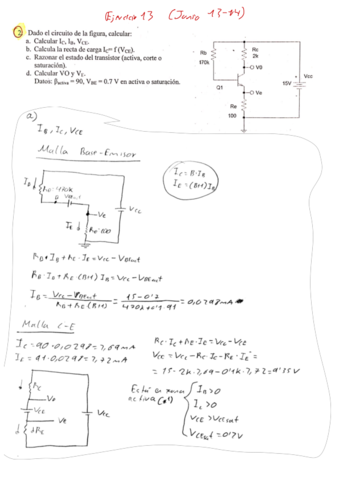 Ejercicio 13 (Junio 13-14)
2 Dado el circuito de la figura, calcular:
a. Calcular IC, IB, VCE.
b. Calcula la recta de carga IC= f (VCE).
c. Razonar el estado del transistor (activa, corte o saturación).
d. Calcular VO y VE.
Datos: βactiva = 90, VBE = 0.7 V en activa o saturación.
Rb
170k
Rc
2k
V0
Q1
Ve
Re
100
Vcc
15V
a)
IB, IC, VCE
Malla Base-Emisor
IC = B·IB
IE = (B+1)IB
IB
VE
VCC
IE
RE·100
RB·IB + RE·IE = VCC - VBEact
RB·IB + RE (B+1) IB = VCC - VBEact
IB = VCC - VBEact / RB + RE (B+1) = 15-0'7 / 470+0'1·91 = 0,0298mA
Malla C-E
IC = 90·0,0298 = 2,69mA
IE = 91·0,0298 = 2,72mA
RC·IC + RE·IE = VCC - VCE
VCE = VCC - RC·IC - RE·IE =
= 15 - 2k·2,69 - 0'1k·2,72 = 9'35V
RC
Vo
VCE
VE
RE
VCC
Está en zona activa
IB>0
IC>0
VCE > VCEsat
VCEsat = 0'2V